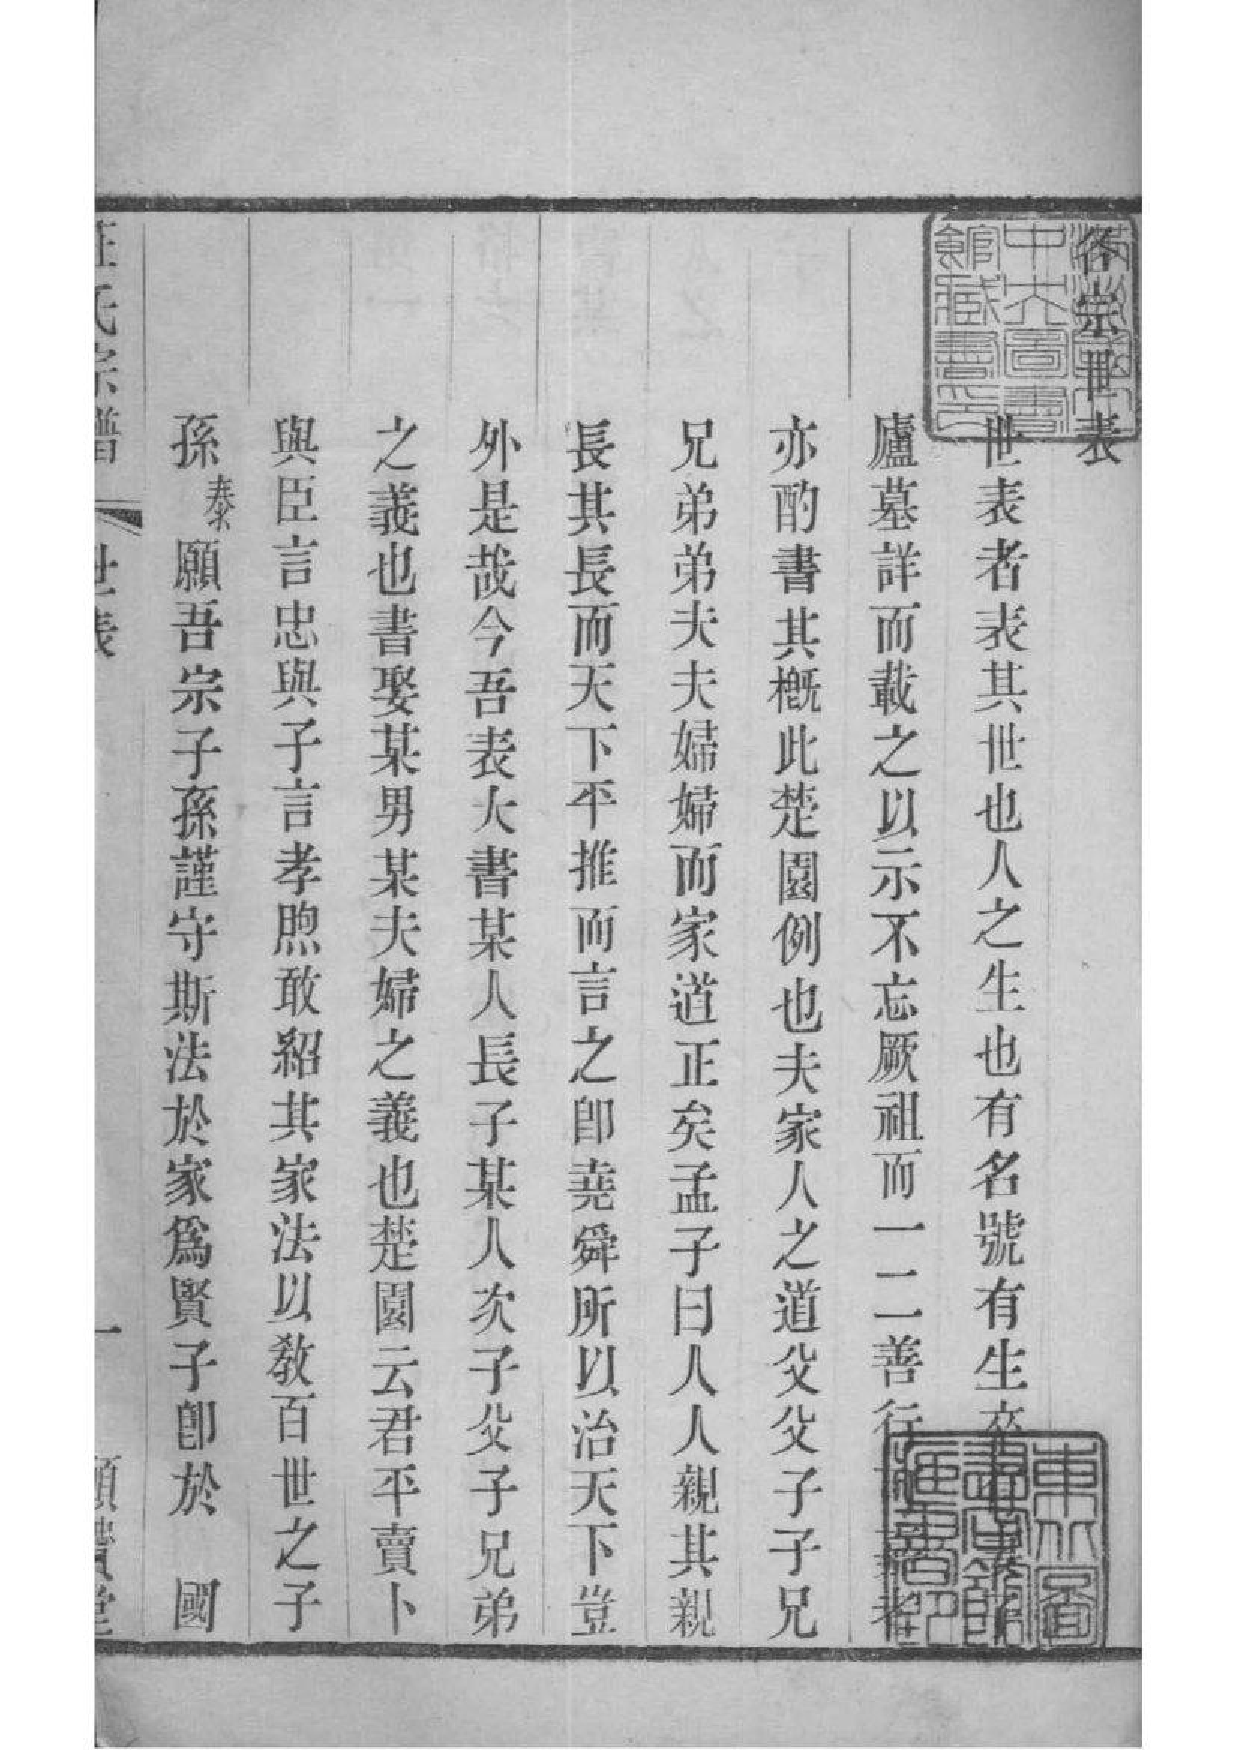 各宗世表
世表者表其世也人之生也有名號有生卒
廬墓詳而載之以示不忘厥祖而一二善行者
亦酌書其概此楚園例也夫家人之道父父子子兄
兄弟弟夫夫婦婦而家道正矣孟子曰人人親其親
長其長而天下平推而言之卽堯舜所以治天下豈
外是哉今吾表大書某人長子某人次子父子兄弟
之義也書娶某男某夫婦之義也楚園云君平賣卜
與臣言忠與子言孝煦敢紹其家法以敎百世之子
孫泰願吾宗子孫謹守斯法於家爲賢子卽於 國
汪氏宗譜 世表 一